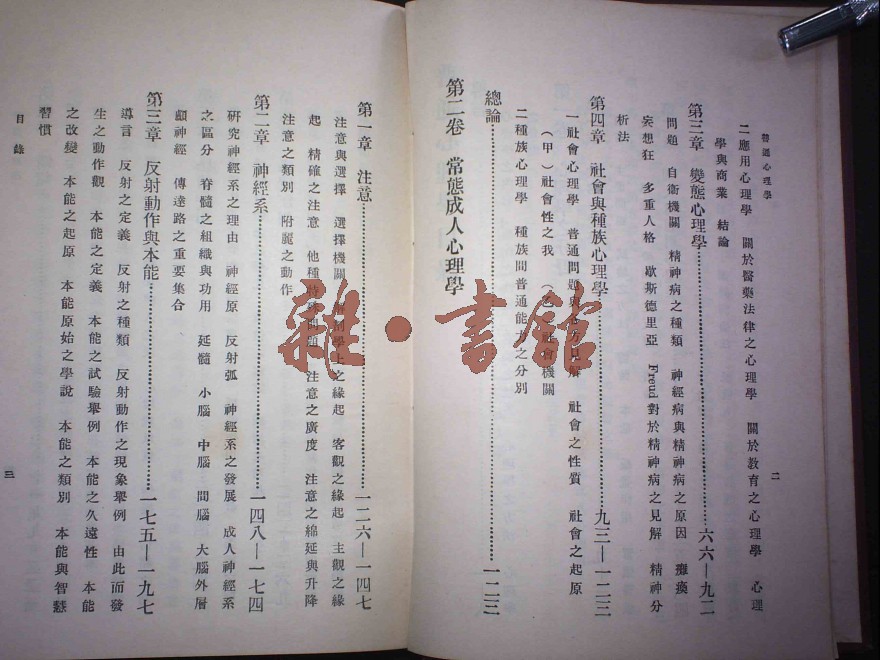 普通心理學
二
二 應用心理學 關於醫藥法律之心理學 關於教育之心理學 心理
學與商業 結論
第三章 變態心理學 六六—九二
問題 自衛機關 精神病之種類 神經病與精神病之原因 癱瘓
妄想狂 多重人格 歇斯德里亞 Freud 對於精神病之見解 精神分
析法
第四章 社會與種族心理學 九三—一二三
一 社會心理學 普通問題與 見解 社會之性質 社會之起原
(甲)社會性之我 (乙)社會機關
二 種族心理學 種族間普通能力之分別
總論 一二三
第二卷 常態成人心理學
第一章 注意 一二六—一四七
注意與選擇 選擇機關 學上之緣起 客觀之緣起 主觀之緣
起 精確之注意 他種特殊問題 注意之廣度 注意之綿延與升降
注意之類別 附麗之動作
第二章 神經系 一四八—一七四
研究神經系之理由 神經原 反射弧 神經系之發展 成人神經系
之區分 脊髓之組織與功用 延髓 小腦 中腦 間腦 大腦外層
顱神經 傳達路之重要集合
第三章 反射動作與本能 一七五—一九七
導言 反射之定義 反射之種類 反射動作之現象舉例 由此而發
生之動作觀 本能之定義 本能之試驗舉例 本能之久遠性 本能
之改變 本能之起原 本能原始之學說 本能之類別 本能與智慧
習慣
目錄
三
雜·書館